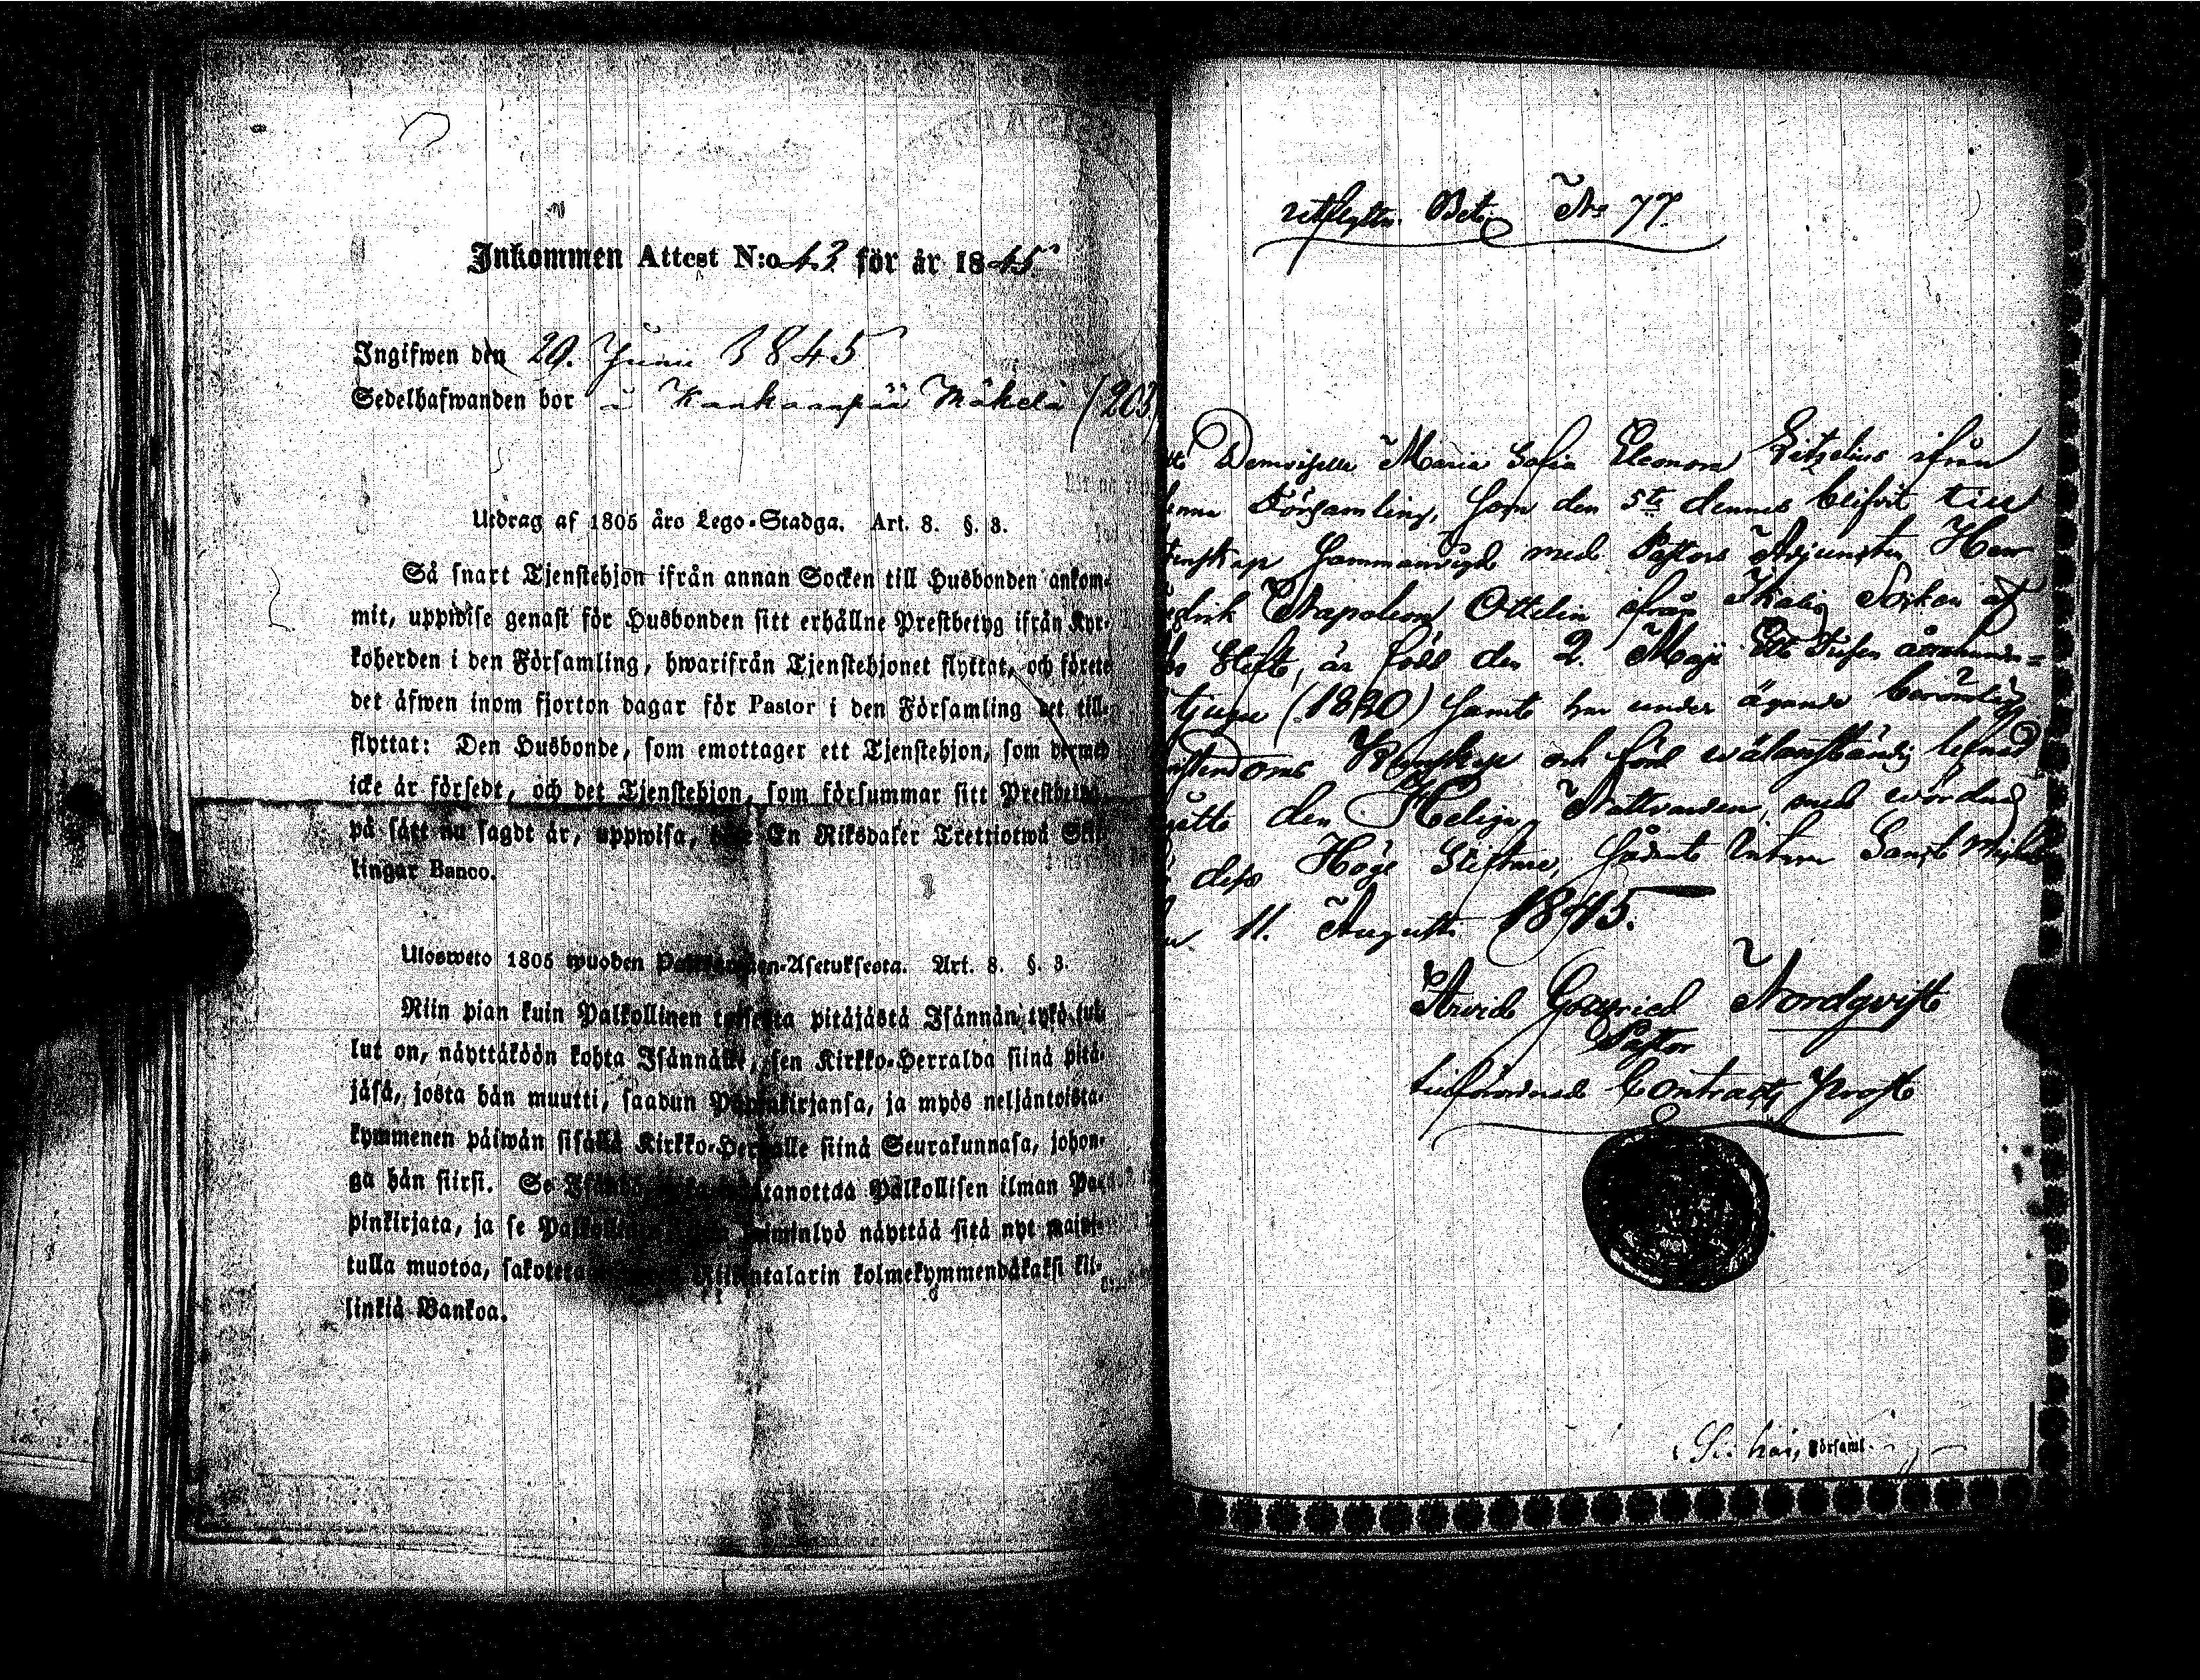 Inkommen Attest N:o 43 för år 1845
Ingifwen den 20. Junii 1845
Sedelhafwanden bor i Kankaanpää Mäkelä (203)
Utdrag af 1805 års Lego-Stadga. Art. 8. §. 3.
Så snart Tjenstehjon ifrån annan Socken till Husbonden ankom-
mit, uppwise genast för Husbonden sitt erhållne Prestbetyg ifrån Kyr-
koherden i den Församling, hwarifrån Tjenstehjonet flyttat, och förete
det äfwen inom fjorton dagar för Pastor i den Församling det till-
flyttat: Den Husbonde, som emottager ett Tjenstehjon, som dermed
icke är försedt, och det Tjenstehjon, som försummar sitt Prestbetyg
på sätt nu sagdt är, uppwisa, En Riksdaler Trettiotwå Skil-
lingar Banco.
Ulosweto 1805 wuoden Asetuksesta. Art. 8. §. 3.
Niin pian kuin Palkollinen toisesta pitäjästä Isännän tykö tul-
lut on, näyttäköön kohta Isännälle, sen Kirkko-Herralda siinä pitä-
jäsä, josta hän muutti, saadun Papinkirjansa, ja myös neljäntoista-
kymmenen päiwän sisällä Kirkko-Herralle siinä Seurakunnasa, johon-
ga hän siirsi. Se wastanottaa Palkollisen ilman Pa-
pinkirjata, ja se laiminlyö näyttää sitä nyt maini-
tulla muotoa, sakotetaan Riikintalarin kolmekymmendäkaksi kil-
linkiä Bankoa.
utflyttn. Bet. No 77.
Demoiselle Maria Sofia Eleonora Litzelius ifrån
Församling, som den 5te dennes blifvit till
sammanvigd med Pastors Adjuncten Herr
Napoleon Ottelin ifrån Ikalis Socken af
Stift, är född den 2. Maji Ett Tusen åttahundra-
tjugu (1820) samt har under ägande berömlig
Kunskap och förd wälanständig lefnad
den Heliga Nattvarden, med wördnad
dess Höge Stiftare, Sanct Michels
11. Augusti 1845.
Arvid Gottfried Nordqvist
Pastor
tillförordnad Contracts Prost
Församl.